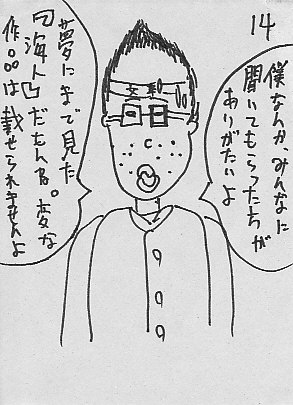 14
僕なんか、みんなに
聞いてもらったちが
ありがたいよ
夢にまで見た
『海人』だもんね。変な
作品は載せられませんよ